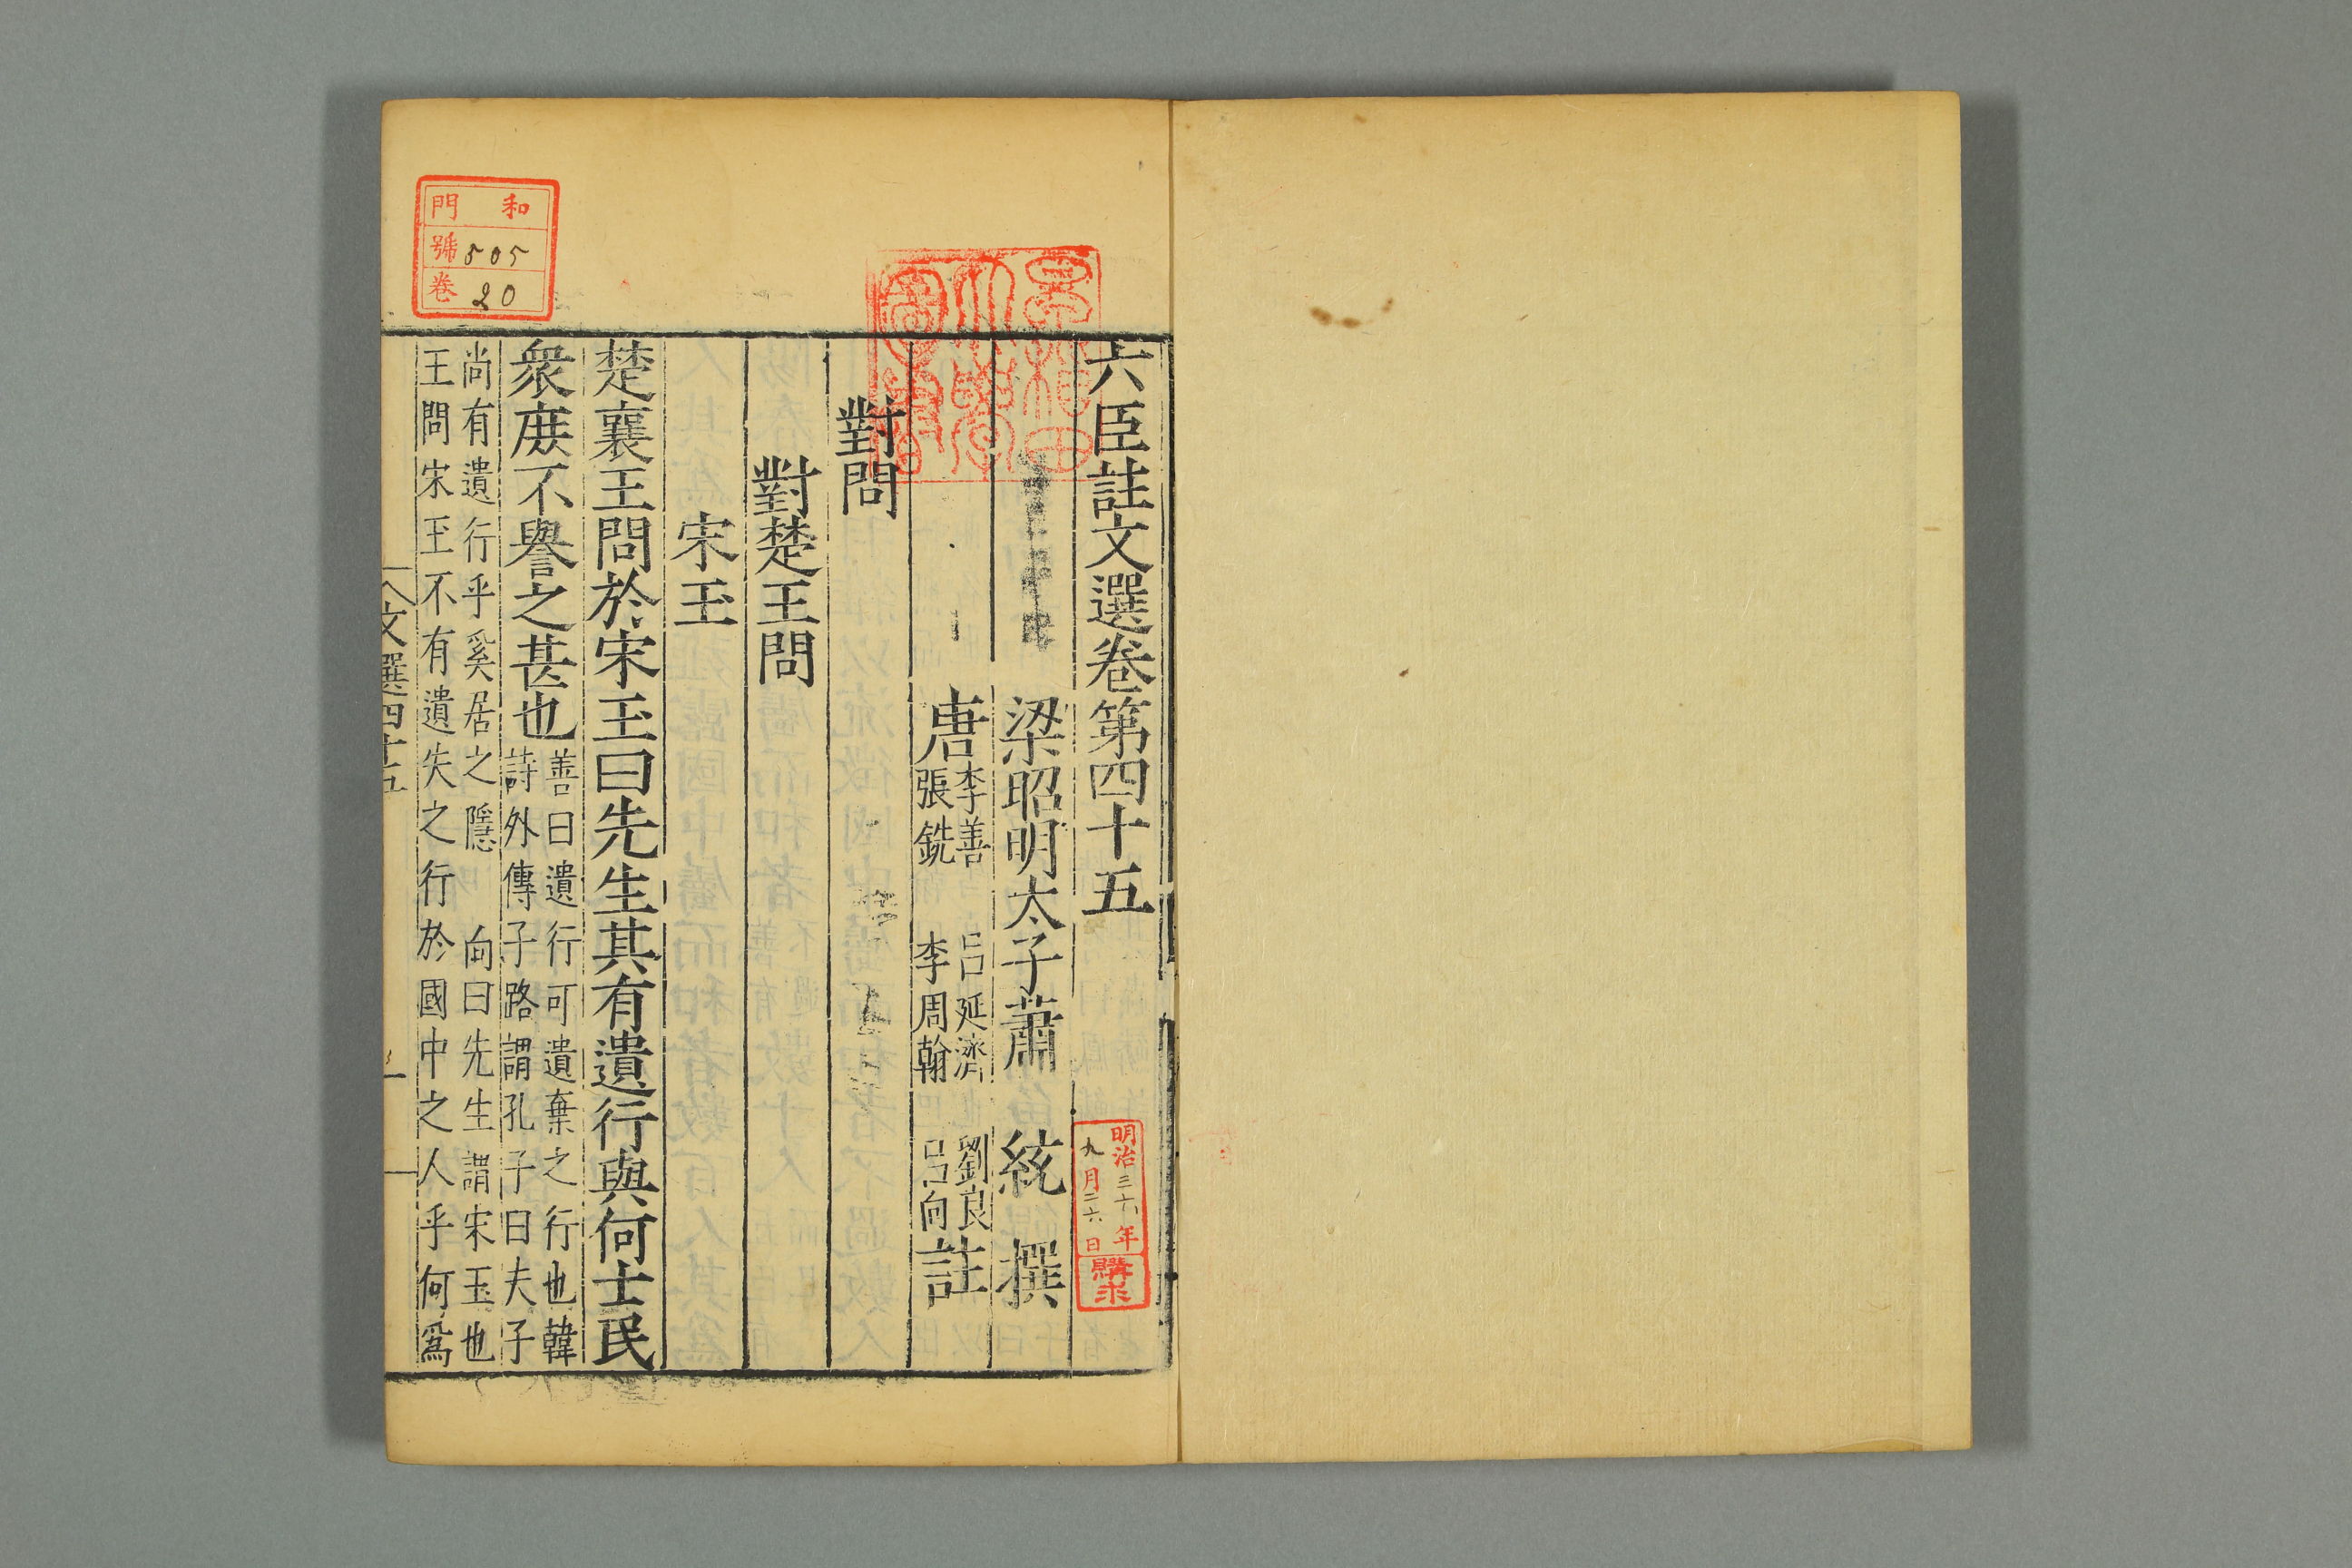 六臣註文選卷第四十五
梁昭明太子蕭 統 撰
唐李善 呂延濟 劉良註
張銑 李周翰 呂向
對問
對楚王問
宋玉
楚襄王問於宋玉曰先生其有遺行與何士民
衆庶不譽之甚也
善曰遺行可遺棄之行也韓
詩外傳子路謂孔子曰夫子
尚有遺行乎奚居之隱 向曰先生謂宋玉也
王問宋玉不有遺失之行於國中之人乎何爲
文選四十五
一
和門
號505
卷20
早稲田
大學
圖書
明治三六年
九月二六日
購求